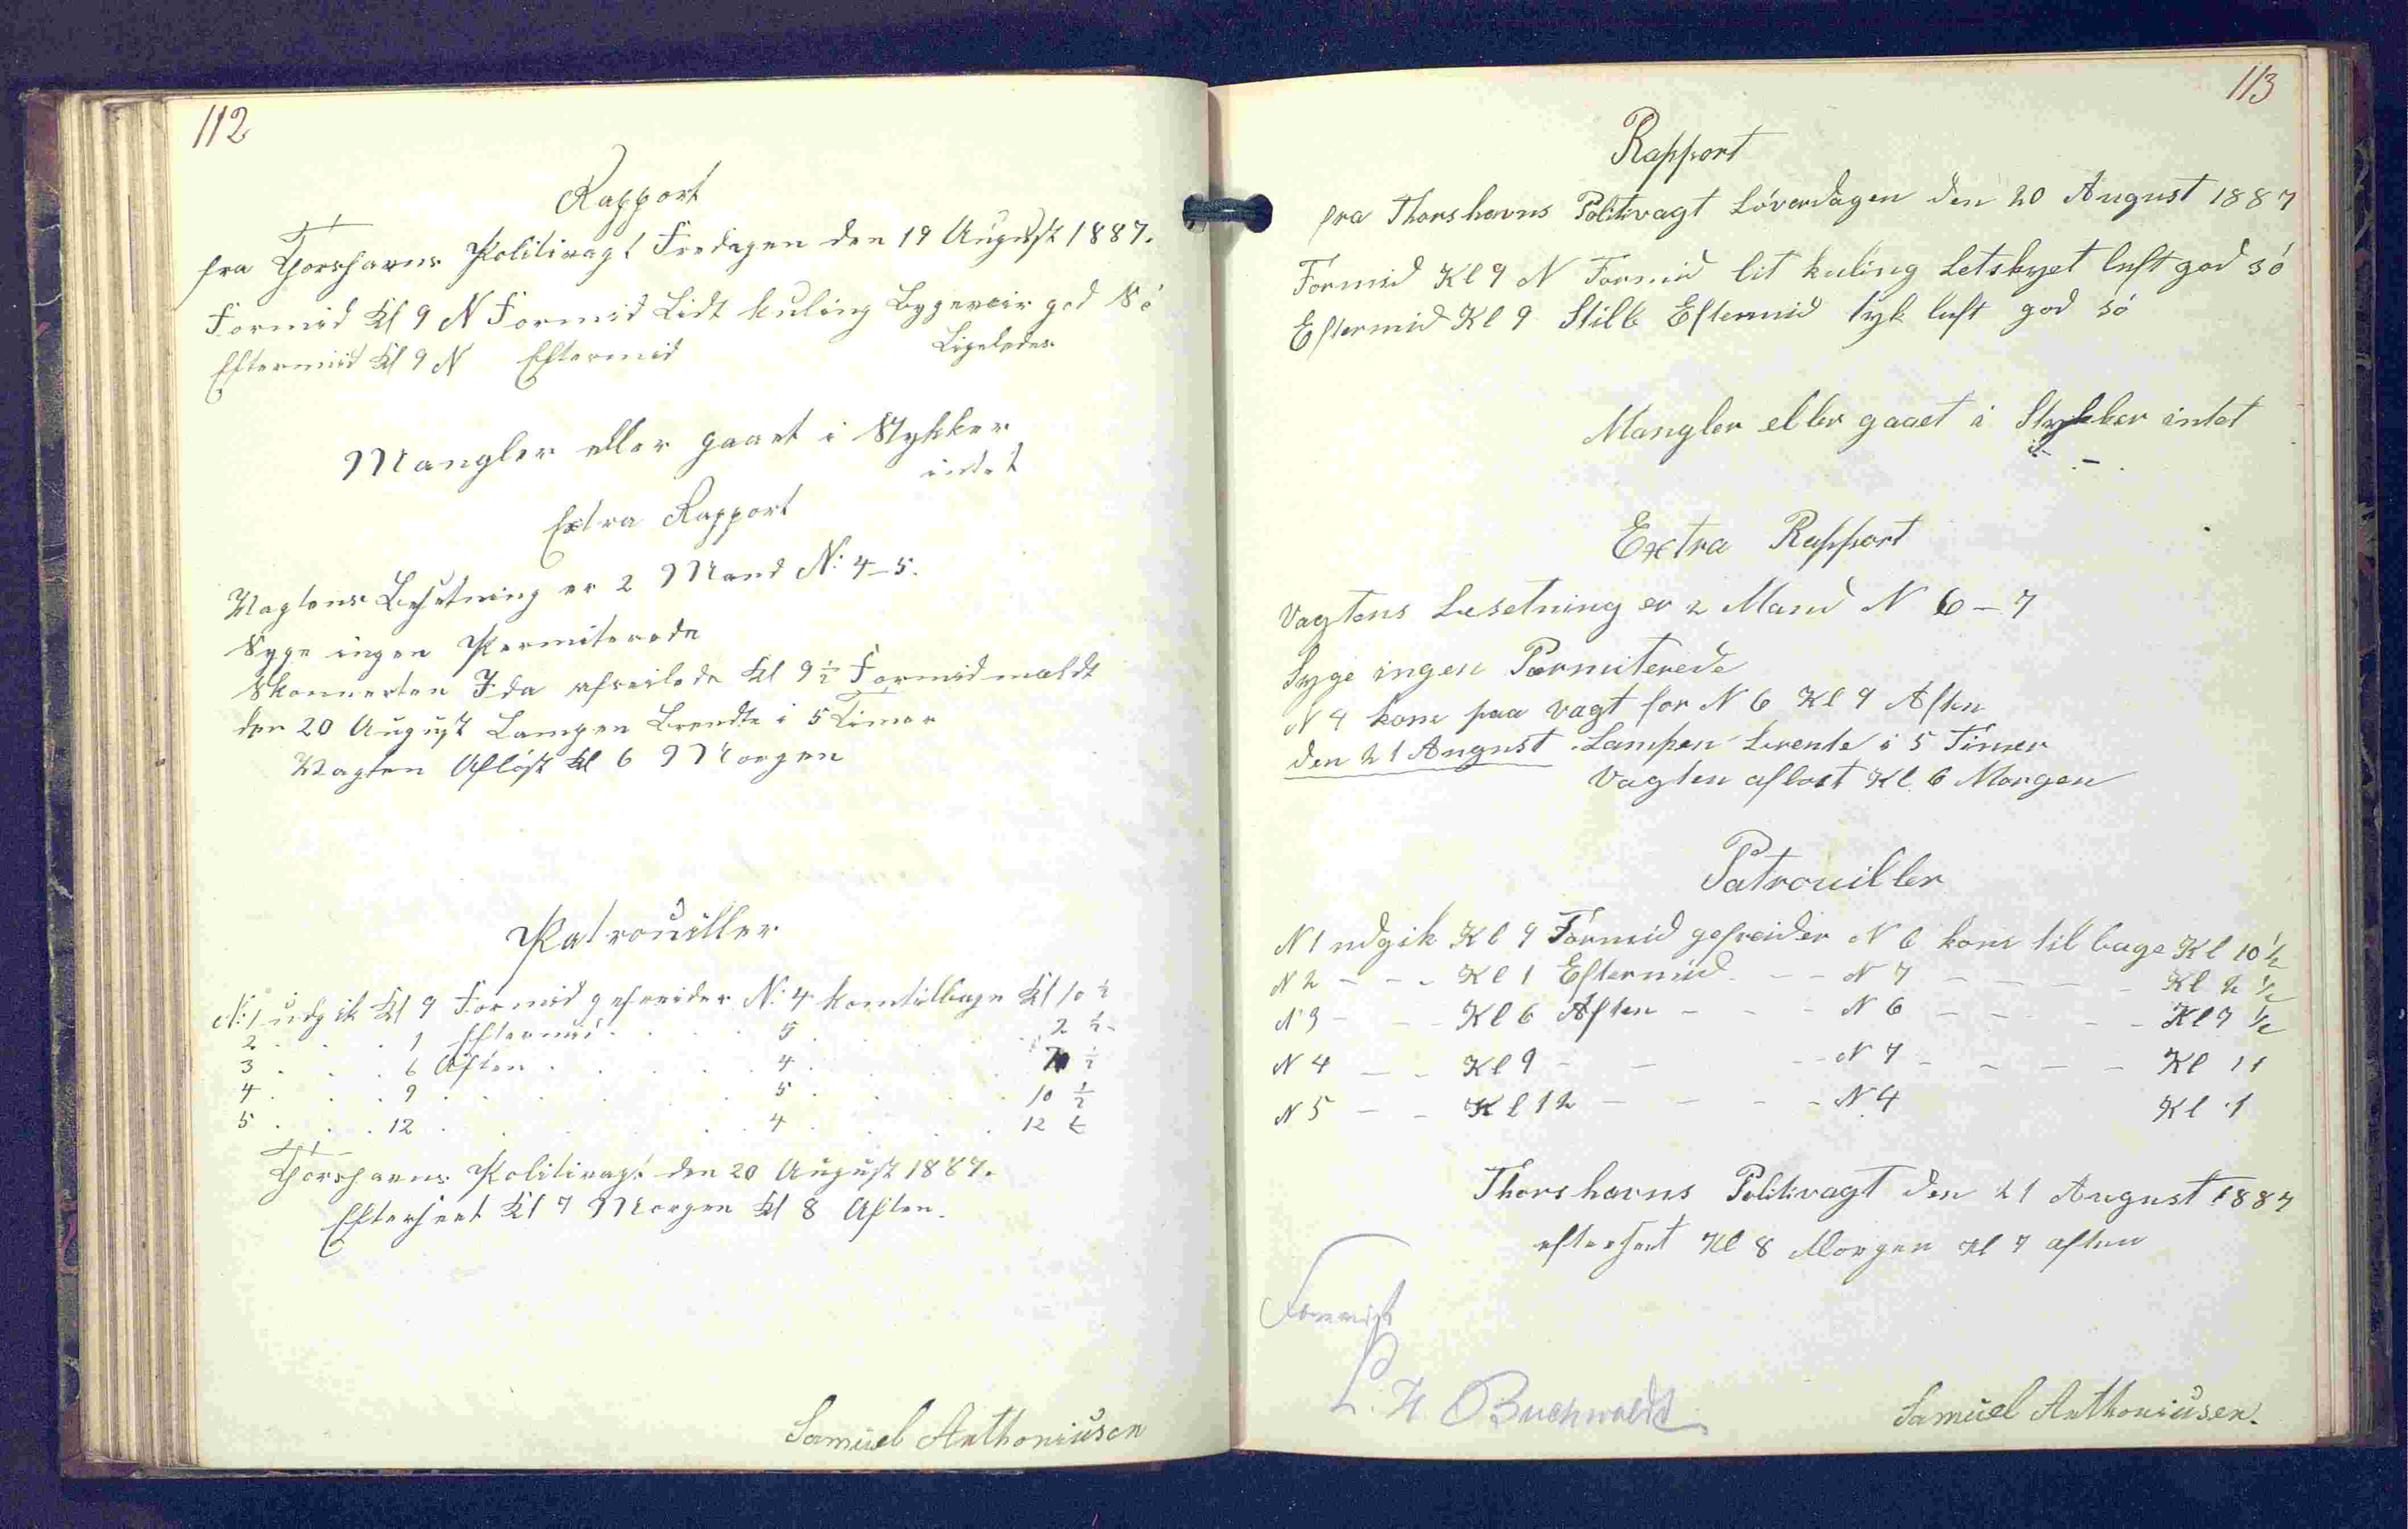 112
Rapport
fra Thorshavns Politivagt Fredagen den 19 August 1887.
Formid Kl 9 N Formid Lidt kuling Bygeveir god Sö
Eftermid Kl 9 N Eftermid Ligeledes
Mangler eller gaaet i Stykker
intet
Extra Rapport
Vagtens Besetning er 2 Mand N: 4-5.
Syge ingen Permiterede
Skonnerten Ida afseilede Kl 9 1/2 Formid meldt
den 20 August Lampen Brendte i 5 Timer
Vagten Aflöst Kl 6 Morgen
Patrouiller
N: 1 udgik Kl 9 Formid gefreider N: 4 kom tilbage Kl 10 1/2
2 . . . 1 Eftermid . . . 5 . . . 2 1/2
3 . . . 6 Aften . . . 4 . . . 7 1/2
4 . . . 9 . . . 5 . . . 10 1/2
5 . . . 12 . . . 4 . . . 12
Thorshavns Politivagt den 20 August 1887.
Efterseet Kl 7 Morgen Kl 8 Aften.
Samuel Anthoniusen
113
Rapport
fra Thorshavns Politivagt Löverdagen den 20 August 1887
Formid Kl 9 N Formid lit kuling Letskyet luft god sö
Eftermid Kl 9 Stille Eftermid tyk luft god sö
Mangler eller gaaet i Stykker intet
Extra Rapport
Vagtens besetning er 2 Mand N 6-7
Syge ingen Permiterede
N 4 kom paa vagt for N 6 Kl 9 Aften
den 21 August Lampen brente i 5 Timer
Vagten aflost Kl 6 Morgen
Patrouiller
N 1 udgik Kl 9 Formid gefreider N 6 kom tilbage Kl 10 1/2
N 2 - - - Kl 1 Eftermid - - N 7 - - - - Kl 2 1/2
N 3 - - - Kl 6 Aften - - - N 6 - - - - Kl 7 1/2
N 4 - - Kl 9 - - - - N 7 - - - - Kl 11
N 5 - - Kl 12 - - - - N 4 Kl 1
Thorshavns Politivagt den 21 August 1887
efterseet Kl 8 Morgen Kl 7 aften
L. H Buchwaldt
Samuel Anthoniusen.